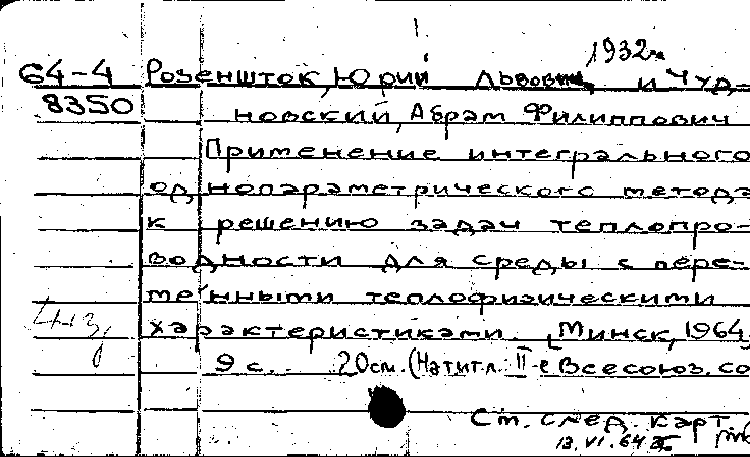 1932г.
64-4 Розеншток, Юрий Львович, и Чуд-
8350 новский, Абрам Филиппович
Применение интегрального
однопараметрического метода
к решению задач теплопро-
водности для среды с пере-
менными теплофизическими
характеристиками. [Минск, 1964,
9 с. 20см. (На тит.л. II-е Всесоюз. со
См. след. карт.
13.VI.64